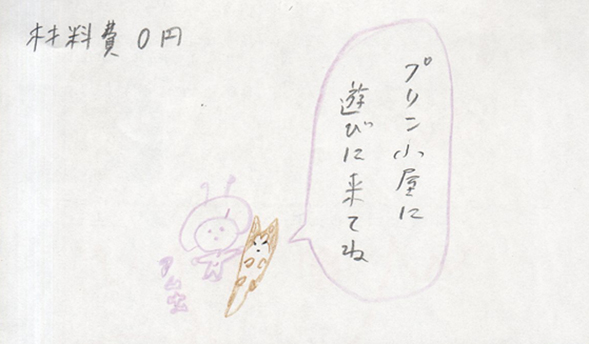 材料費0円
プリン小屋に
遊びに来てね